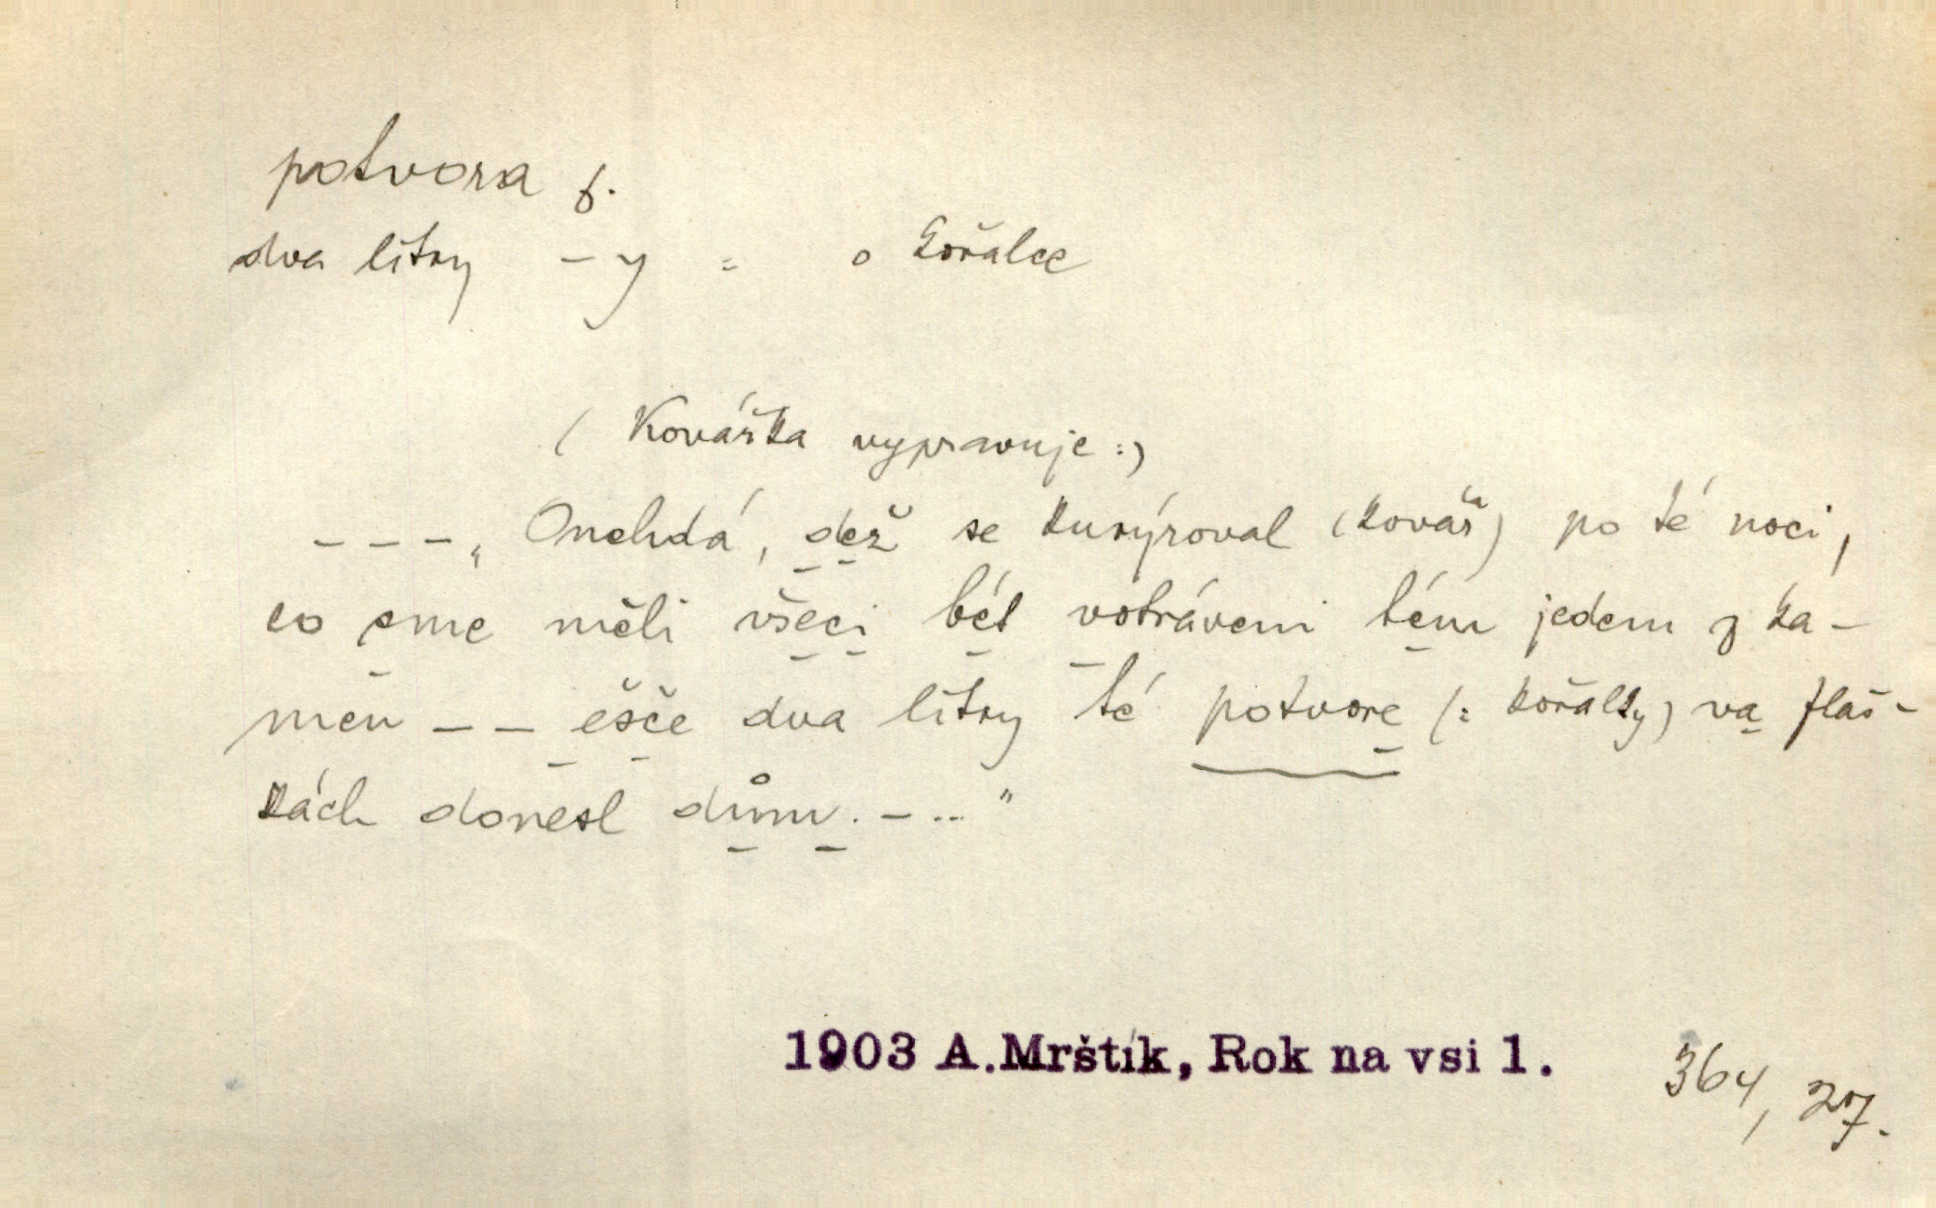 potvora f.
dva litry – y = o kořalce
( Kovářka vypravuje :)
– – – „ Onehdá, dež se kurýroval (kovář) po té noci,
co sme měli všeci bét votráveni tém jedem z ka-
men – – ešče dva litry té potvore (= kořalky) va flaš-
kách donesl důmu. – ..."
1903 A.Mrštík, Rok na vsi 1. 364, 27.